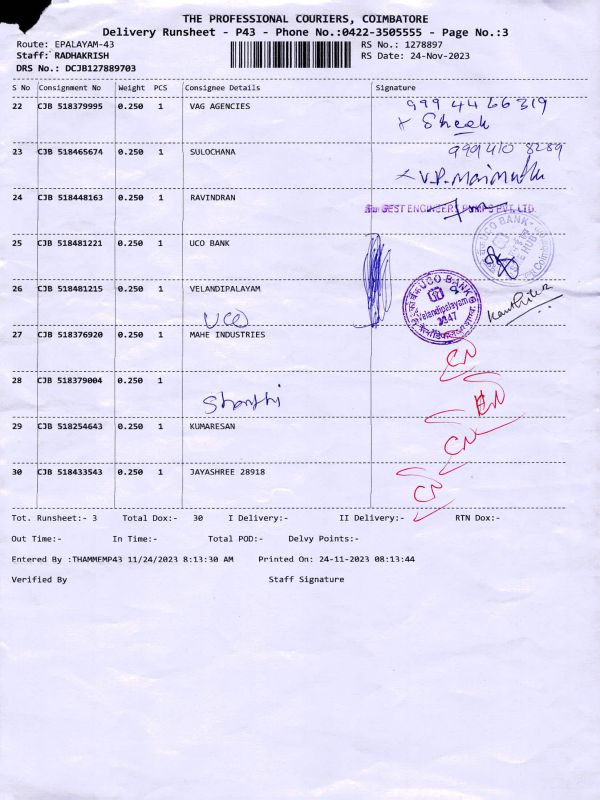 THE PROFESSIONAL COURIERS, COIMBATORE
Delivery Runsheet - P43 - Phone No.:0422-3505555 - Page No.:3
Route: EPALAYAM-43 RS No.: 1278897
Staff: RADHAKRISH RS Date: 24-Nov-2023
DRS No.: DCJB127889703
S No Consignment No Weight PCS Consignee Details Signature
22 CJB 518379995 0.250 1 VAG AGENCIES
23 CJB 518465674 0.250 1 SULOCHANA
24 CJB 518448163 0.250 1 RAVINDRAN
25 CJB 518481221 0.250 1 UCO BANK
UCO BANK
26 CJB 518481215 0.250 1 VELANDIPALAYAM
UCO BANK
Velandipalayam
UCO
27 CJB 518376920 0.250 1 MAHE INDUSTRIES
28 CJB 518379004 0.250 1
Shanthi
29 CJB 518254643 0.250 1 KUMARESAN
30 CJB 518433543 0.250 1 JAYASHREE 28918
Tot. Runsheet:- 3 Total Dox:- 30 I Delivery:- II Delivery:- RTN Dox:-
Out Time:- In Time:- Total POD:- Delvy Points:-
Entered By :THAMMEMP43 11/24/2023 8:13:30 AM Printed On: 24-11-2023 08:13:44
Verified By Staff Signature